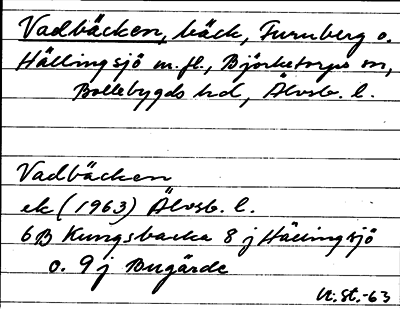 Vadbäcken, bäck, Furuberg o.
Hällingsjö m.fl., Björketorps sn,
Bollebygds hd, Älvsb. l.
Vadbäcken
ek (1963) Älvsb. l.
6B Kungsbacka 8 j Hällingsjö
o. 9 j Bugärde
U. St. -63